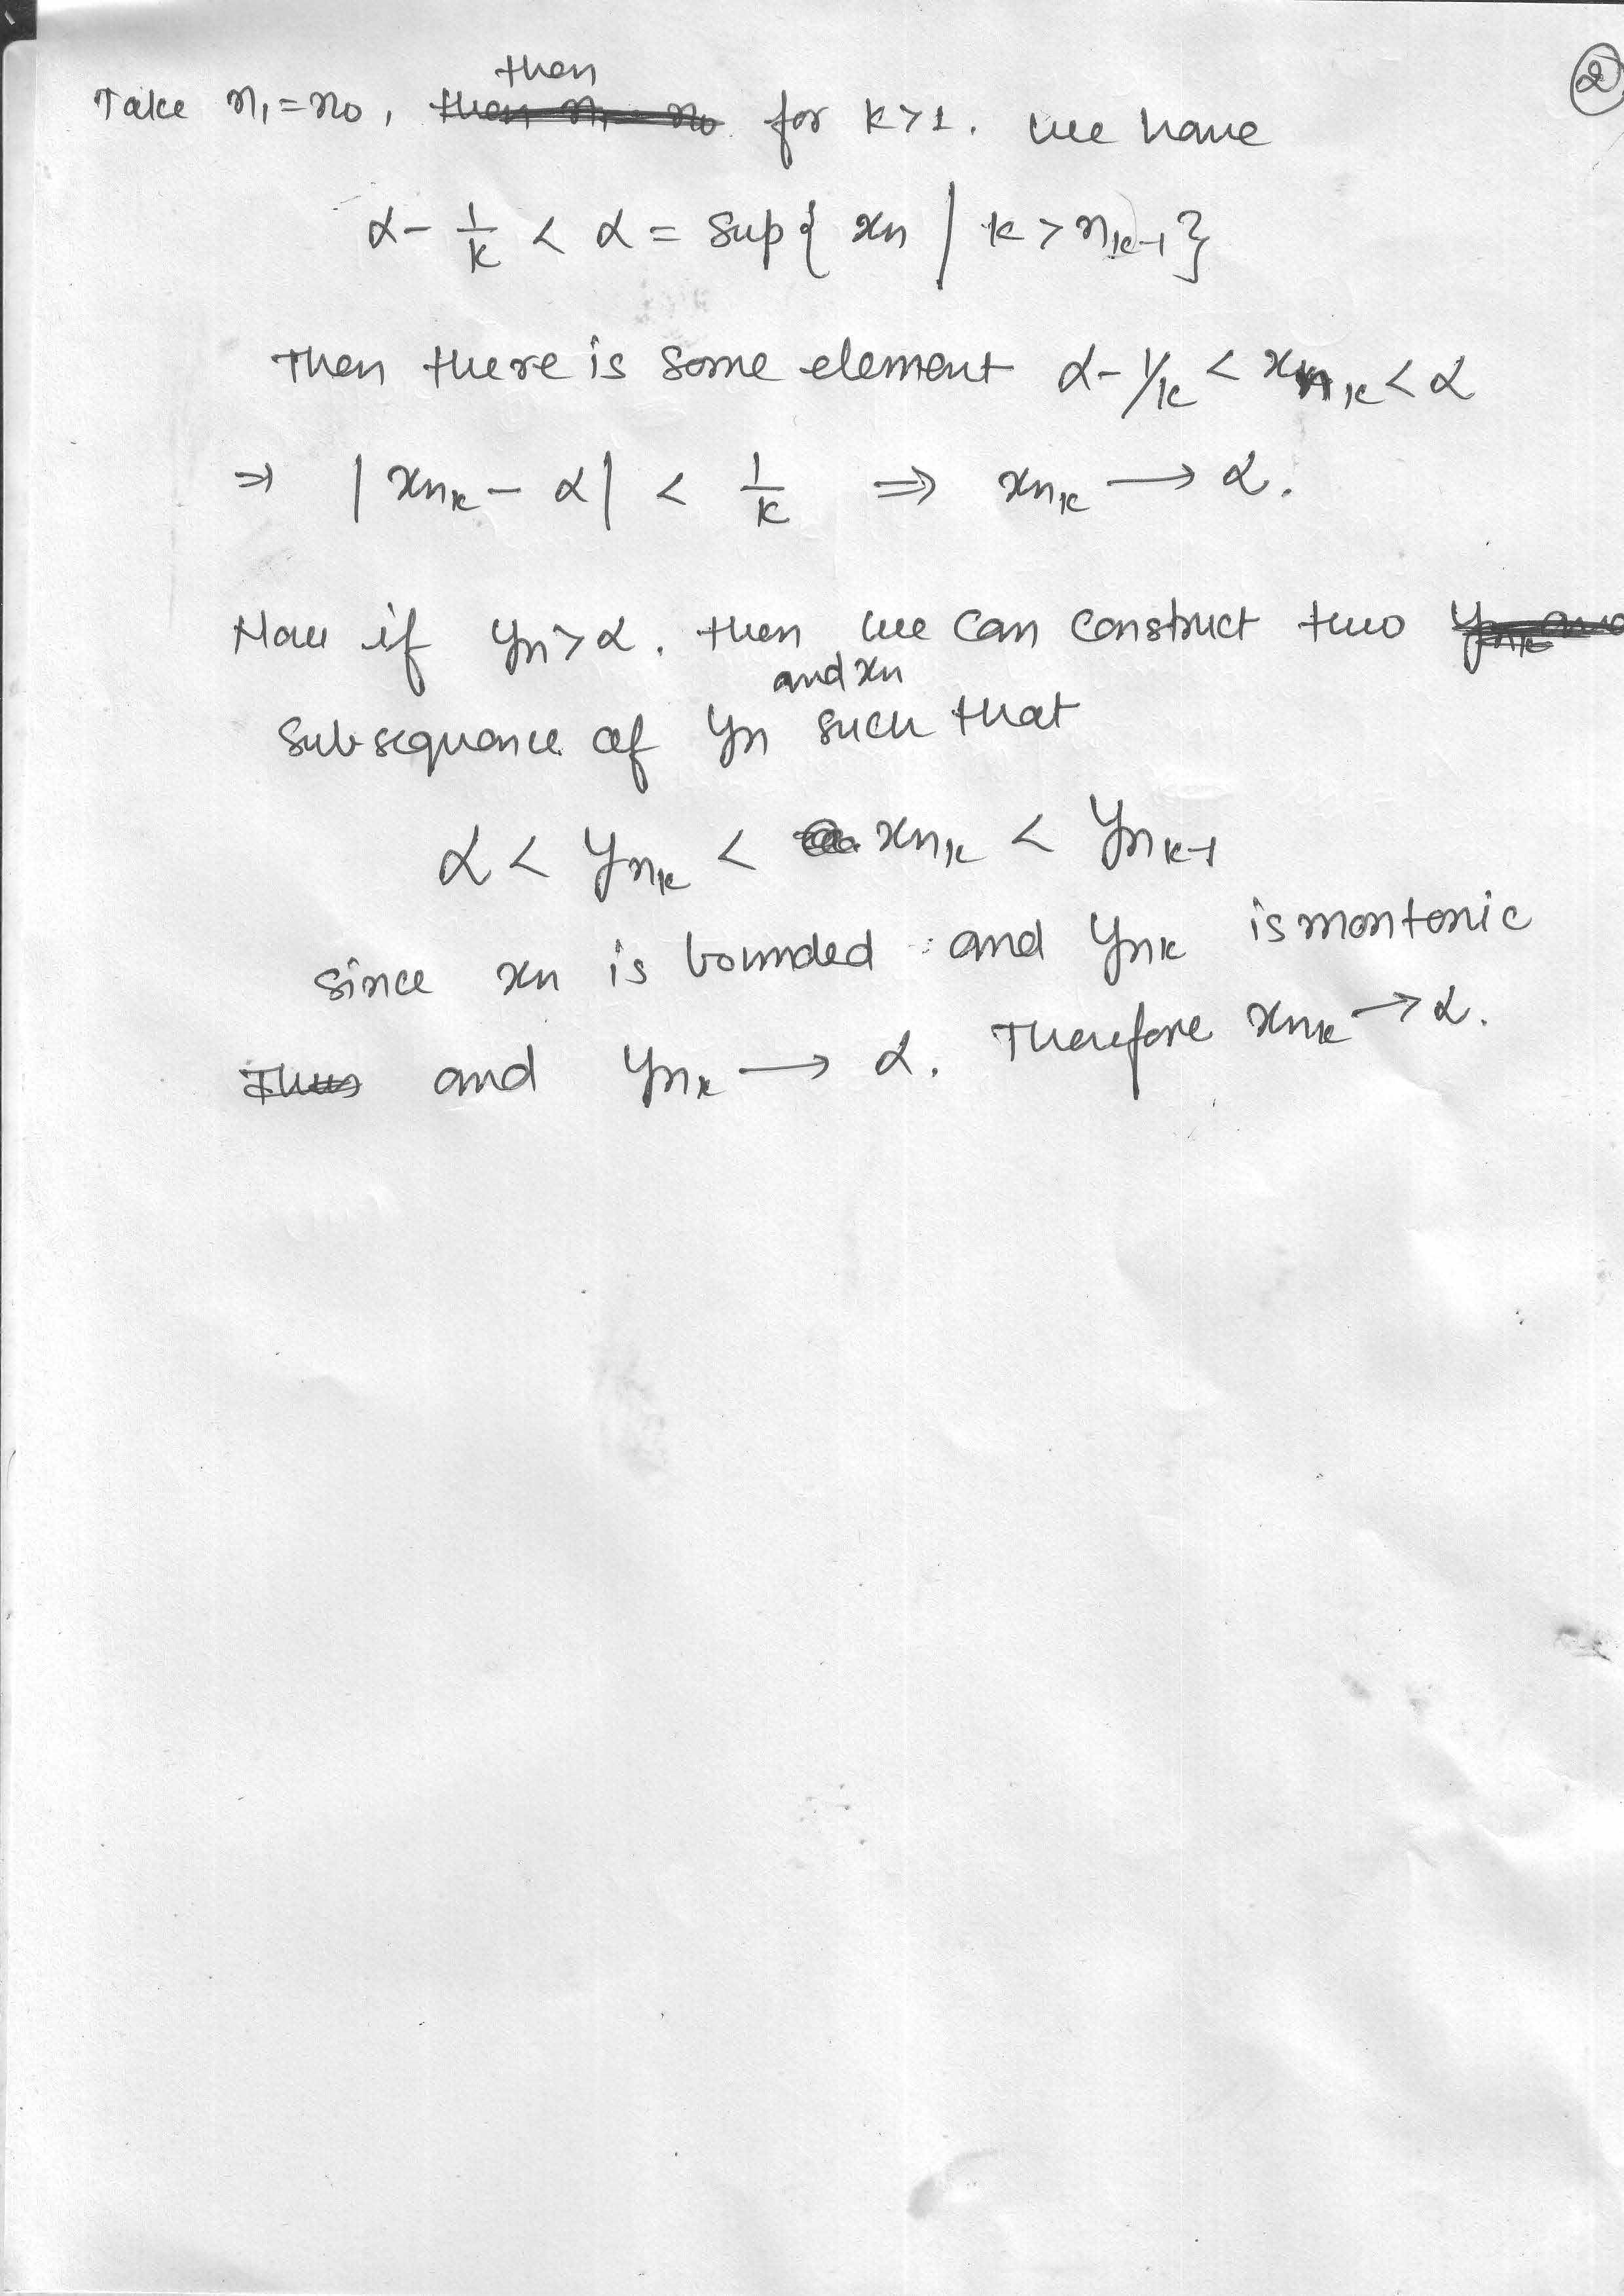 ②
then
Take n₁=n₀, then n₁ = n₀ for k>1. we have
α - 1/k < α = Sup{ xn | k > nk-1}
Then there is some element α - 1/k < xnk < α
⇒ |xnk - α| < 1/k ⇒ xnk → α.
Now if yn > α. then we can construct two
and xn
subsequence of yn such that
α < ynk < xnk < ynk-1
since xn is bounded and ynk is montonic
Thus and ynk → α. Therefore xnk → α.